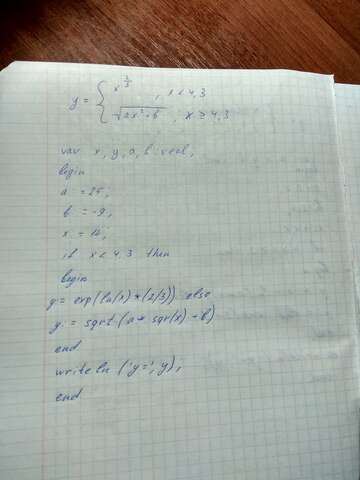 y = { x^(2/3) , x < 4,3
√(2x² + b) , x ≥ 4,3
var x, y, a, b : real;
begin
a = 25;
b = -9;
x = 16;
if x < 4,3 then
begin
y = exp(ln(x) * (2/3)) else
y = sqrt (a * sqr(x) + b)
end
writeln ('y=', y);
end